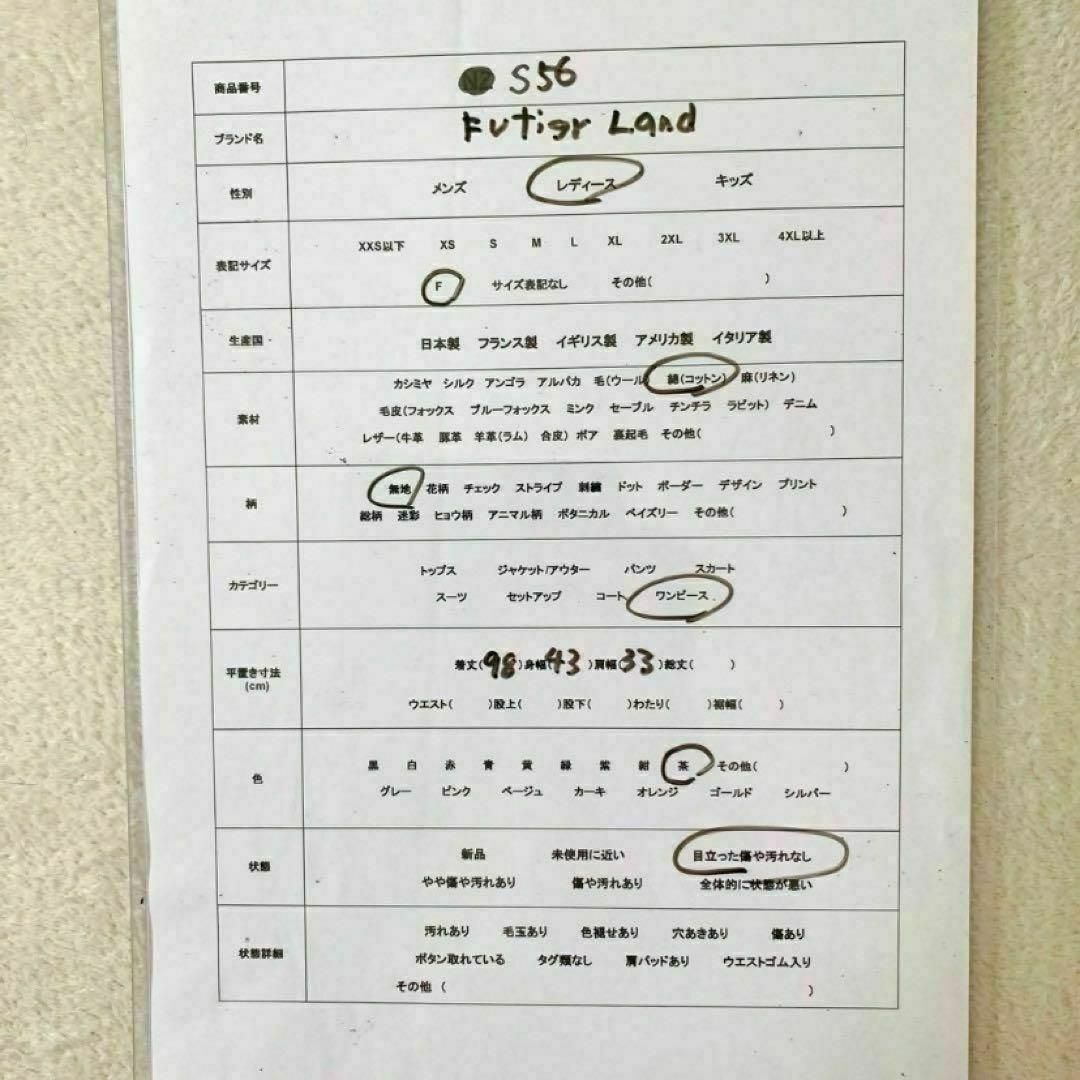 商品番号 NZ S56
ブランド名 Futier Land
性別 メンズ レディース キッズ
XXS以下 XS S M L XL 2XL 3XL 4XL以上
表記サイズ
F サイズ表記なし その他( )
生産国 日本製 フランス製 イギリス製 アメリカ製 イタリア製
カシミヤ シルク アンゴラ アルパカ 毛(ウール) 綿(コットン) 麻(リネン)
素材 毛皮(フォックス ブルーフォックス ミンク セーブル チンチラ ラビット) デニム
レザー(牛革 豚革 羊革(ラム) 合皮) ボア 裏起毛 その他( )
無地 花柄 チェック ストライプ 刺繍 ドット ボーダー デザイン プリント
柄
総柄 迷彩 ヒョウ柄 アニマル柄 ボタニカル ペイズリー その他( )
トップス ジャケット/アウター パンツ スカート
カテゴリー
スーツ セットアップ コート ワンピース
平置き寸法 着丈(98)身幅(43)肩幅(33)総丈( )
(cm)
ウエスト( )股上( )股下( )わたり( )裾幅( )
黒 白 赤 青 黄 緑 紫 紺 茶 その他( )
色
グレー ピンク ベージュ カーキ オレンジ ゴールド シルバー
新品 未使用に近い 目立った傷や汚れなし
状態
やや傷や汚れあり 傷や汚れあり 全体的に状態が悪い
汚れあり 毛玉あり 色褪せあり 穴あきあり 傷あり
状態詳細 ボタン取れている タグ類なし 肩パッドあり ウエストゴム入り
その他 ( )